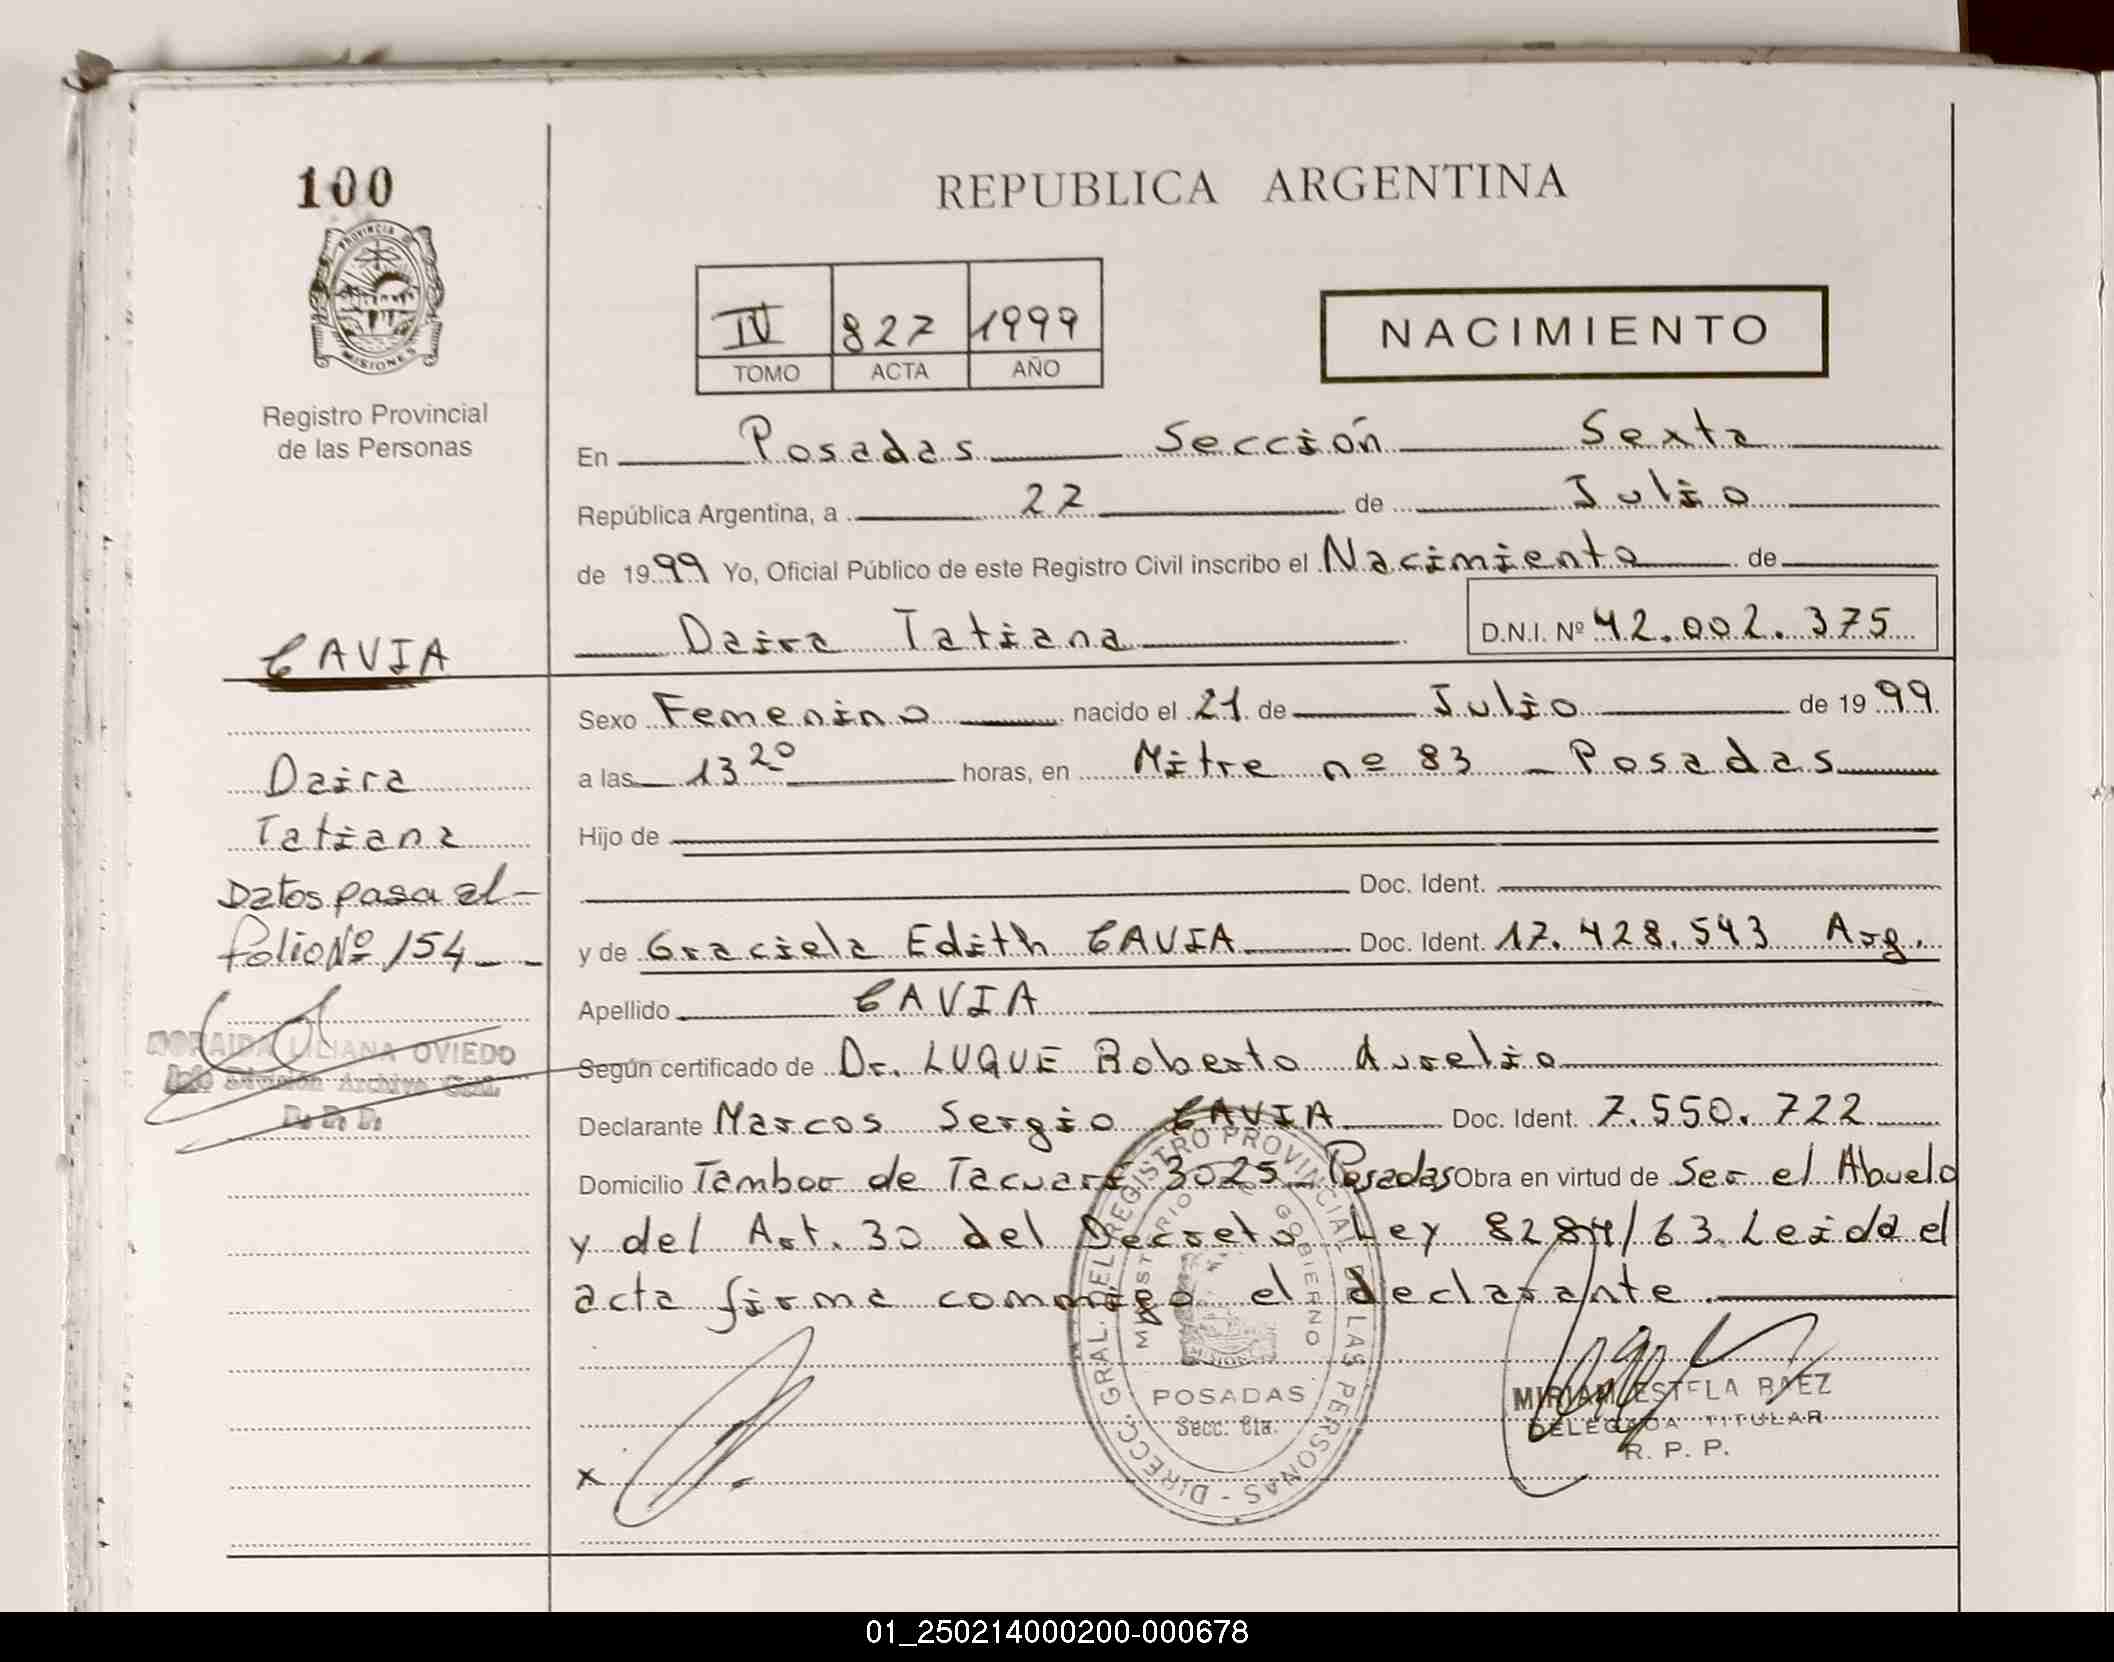 100
PROVINCIA DE
MISIONES
Registro Provincial
de las Personas
CAVIA
Daira
Tatiana
Datos pasa al -
folio Nº 154 - -
LILIANA OVIEDO
REPUBLICA ARGENTINA
IV 827 1999
TOMO ACTA AÑO
NACIMIENTO
En Posadas Sección Sexta
República Argentina, a 27 de Julio
de 1999 Yo, Oficial Público de este Registro Civil inscribo el Nacimiento de
Daira Tatiana D.N.I. Nº 42.002.375
Sexo Femenino nacido el 21 de Julio de 1999
a las 13 20 horas, en Mitre nº 83 - Posadas
Hijo de
Doc. Ident.
y de Graciela Edith CAVIA Doc. Ident. 17.428.543 Arg.
Apellido CAVIA
Según certificado de Dr. LUQUE Roberto Aurelio
Declarante Marcos Sergio CAVIA Doc. Ident. 7.550.722
Domicilio Tambor de Tacuarí 3025 - Posadas Obra en virtud de Ser el Abuelo
y del Art. 30 del Decreto Ley 8284/63. Leida el
acta firma conmigo el declarante
DIRECC. GRAL. DEL REGISTRO PROVINCIAL DE LAS PERSONAS -
MINISTERIO DE GOBIERNO
MISIONES
POSADAS
Secc. 6ta.
MIRIAM ESTELA BAEZ
DELEGADA TITULAR
R. P. P.
x
01_250214000200-000678